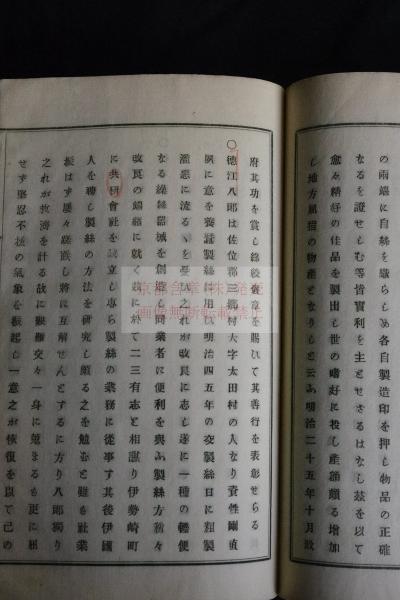 の両端に自絲を織らしめ各自製造印を押し物品の正確
なるを證せしむ等皆實利を主とせさるはなし茲を以て
愈々精好の佳品を製出し世の嗜好に投し産額頗る增加
し地方屈指の物産となりしと云ふ明治二十五年十月政
府其功を賞し綠綬褒章を賜ひて其善行を表彰せらる
〇德江八郎は佐位郡三鄕村大字太田村の人なり資性剛直
夙に意を養蠶製絲に用ひ明治四五年の交製絲日に粗製
濫惡に流るゝを憂へ之れが改良に志し遂に一種の輕便
なる繰絲器械を創造し同業者に便利を與ふ製絲方漸々
改良の緖に就く茲に於て二三有志と相謀り伊勢崎町
に共硏會社を設立し專ら製絲の業務に從事す其後伊國
人を聘し製絲の方法を硏究し頗る之を勉むと雖も社業
振はず屢々蹉跌し將に瓦解せんとするに方り八郎獨り
之れが救濟を計る故に艱難交々一身に蒐まるも更に屈
せず堅忍不拔の氣象を振起し一意之が恢復を以て己の